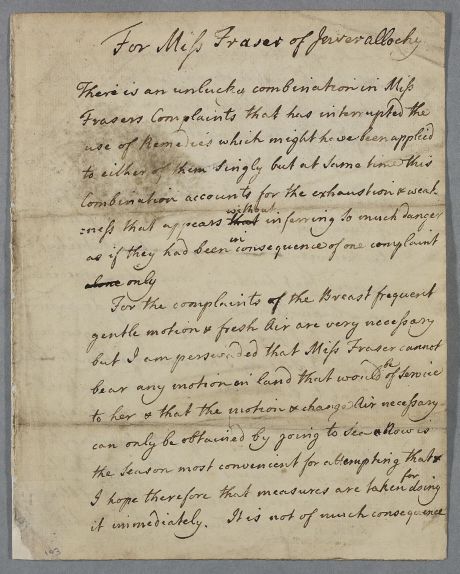 For Miss Fraser of Inverallochy
There is an unlucky combination in Miss
Frasers Complaints that has interrupted the
use of Remedies which might have been applied
to either of them singly but at same time this
Combination accounts for the exhaustion & weak
=ness that appears that without inferring so much danger
as if they had been in consequence of one complaint
alone only
For the complaints of the Breast frequent
gentle motion & fresh Air are very necessary
but I am perswaded that Miss Fraser cannot
bear any motion on land that would be of service
to her & that the motion & change Air necessary
can only be obtained by going to Sea & Now is
the Season most convenient for attempting that &
I hope therefore that measures are taken for doing
it immediately. It is not of much consequence
103